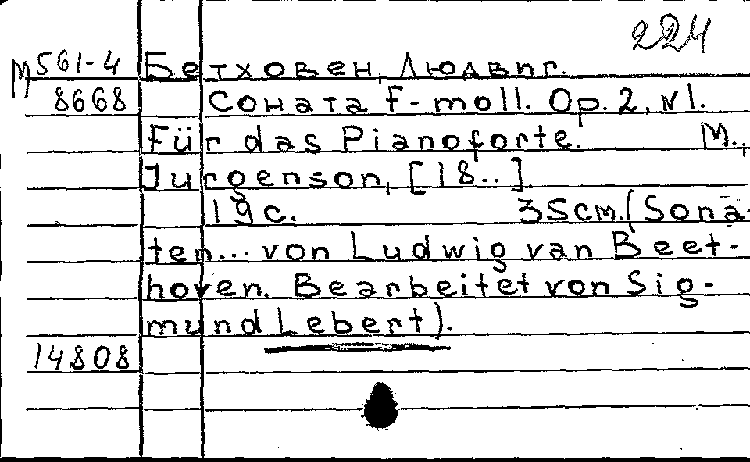 224
М 561-4 Бетховен, Людвиг.
8668 Соната f-moll. Op. 2, N1.
Für das Pianoforte. М.,
Jurgenson, [18..].
19с. 35см. (Sona-
ten... von Ludwig van Beet-
hoven. Bearbeitet von Sig-
mund Lebert).
14808